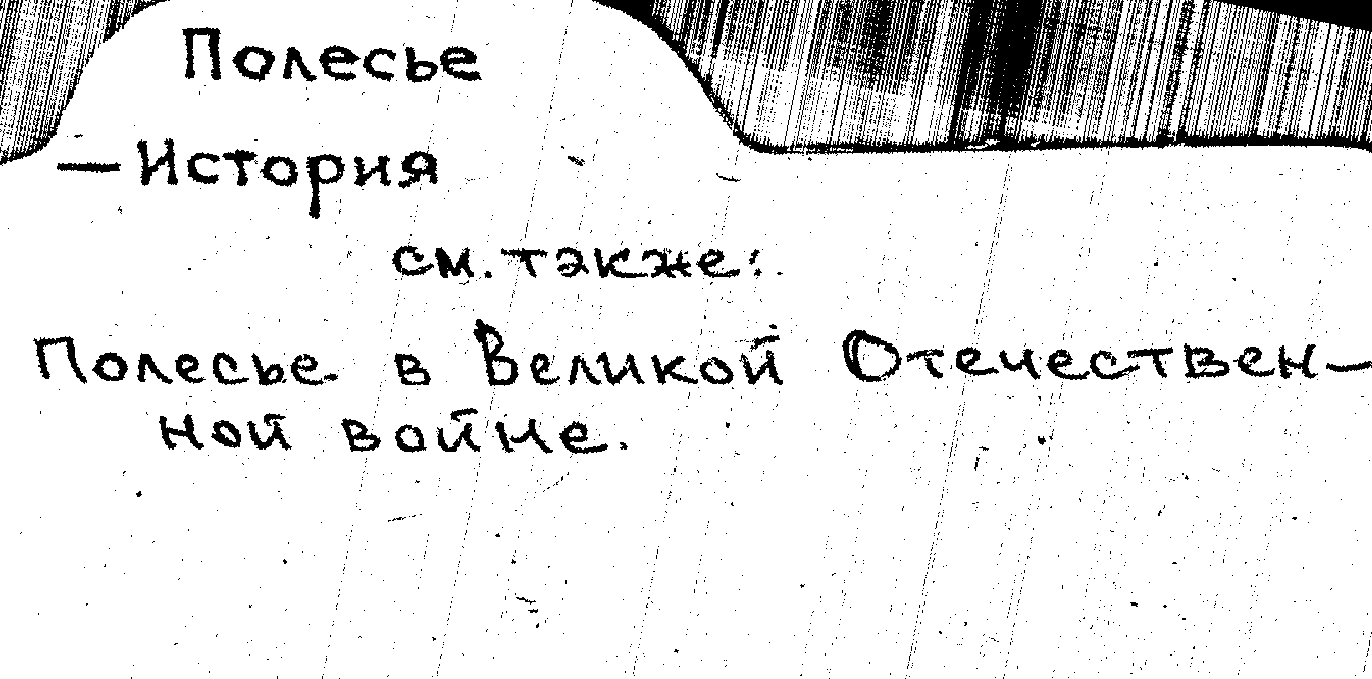 Полесье
— История
см. также:
Полесье в Великой Отечествен-
ной войне.